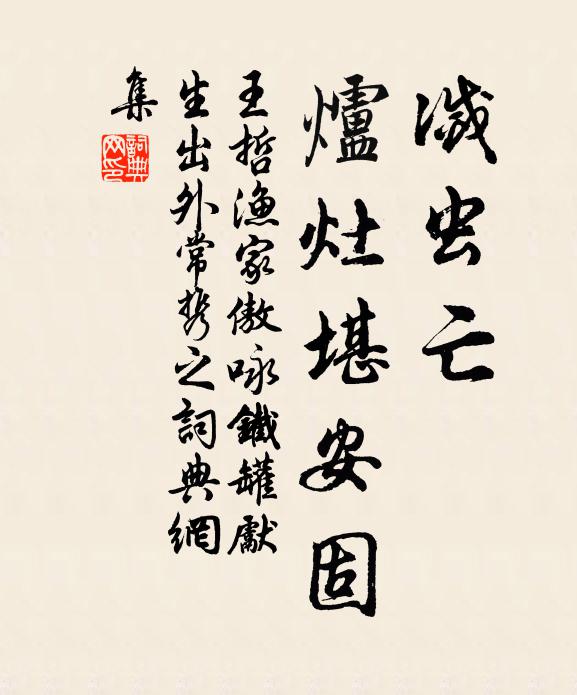 滅虫亡
爐灶堪安固
王哲漁家傲咏鐵罐獻
生出外常携之詞典網
集
詞典
网印